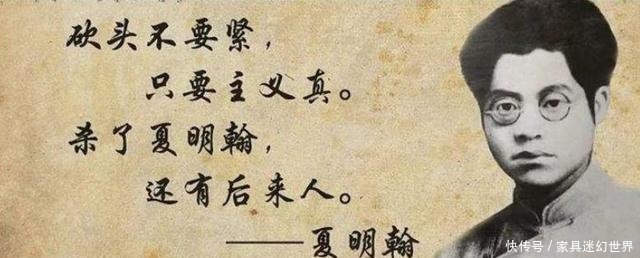 砍头不要紧，
只要主义真。
杀了夏明翰，
还有后来人。
——夏明翰
快传号／家具迷幻世界